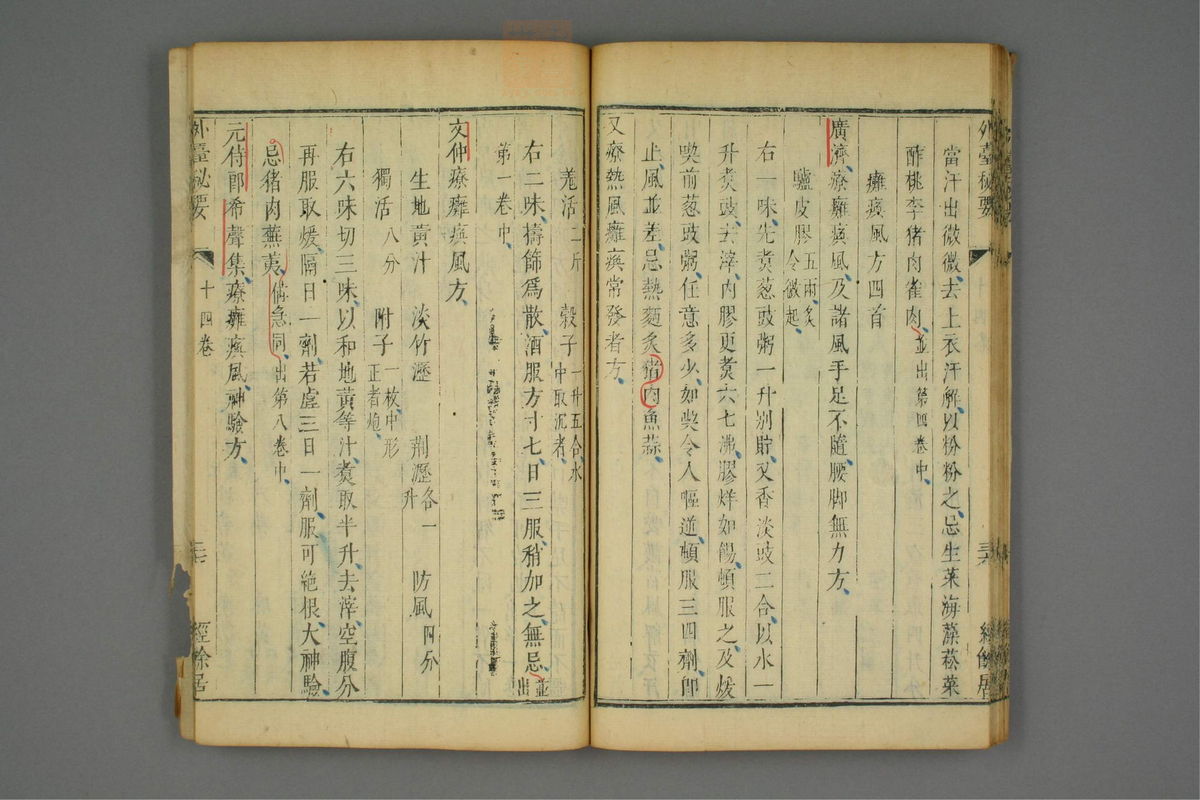 當汗出微微去上衣汗解以粉粉之忌生菜海藻菘菜
酢桃李猪肉雀肉並出第四卷中
癱瘓風方四首
廣濟療癱瘓風及諸風手足不隨腰脚無力方
驢皮膠五兩炙令微起
右一味先煑葱豉粥一升别貯又香淡豉二合以水一
升煑豉去滓内膠更煑六七沸膠烊如餳頓服之及煖
喫前葱豉粥任意多少如喫令人嘔逆頓服三四劑即
止風並差忌熱麵炙猪肉魚蒜
又療熱風癱瘓常發者方
羗活二斤 榖子一升五合水中取沉者
右二味擣篩爲散酒服方寸七日三服稍加之無忌並出
第一卷中
文仲療癱瘓風方
生地黄汁 淡竹瀝 荆瀝各一升 防風四分
獨活八分 附子一枚中形正者炮
右六味切三味以和地黄等汁煑取半升去滓空腹分
再服取煖隔日一劑若虚三日一劑服可絶根大神驗
忌猪肉蕪荑備急同出第八卷中
元侍郎希聲集療癱瘓風神驗方
外臺秘要
十四卷
經餘居